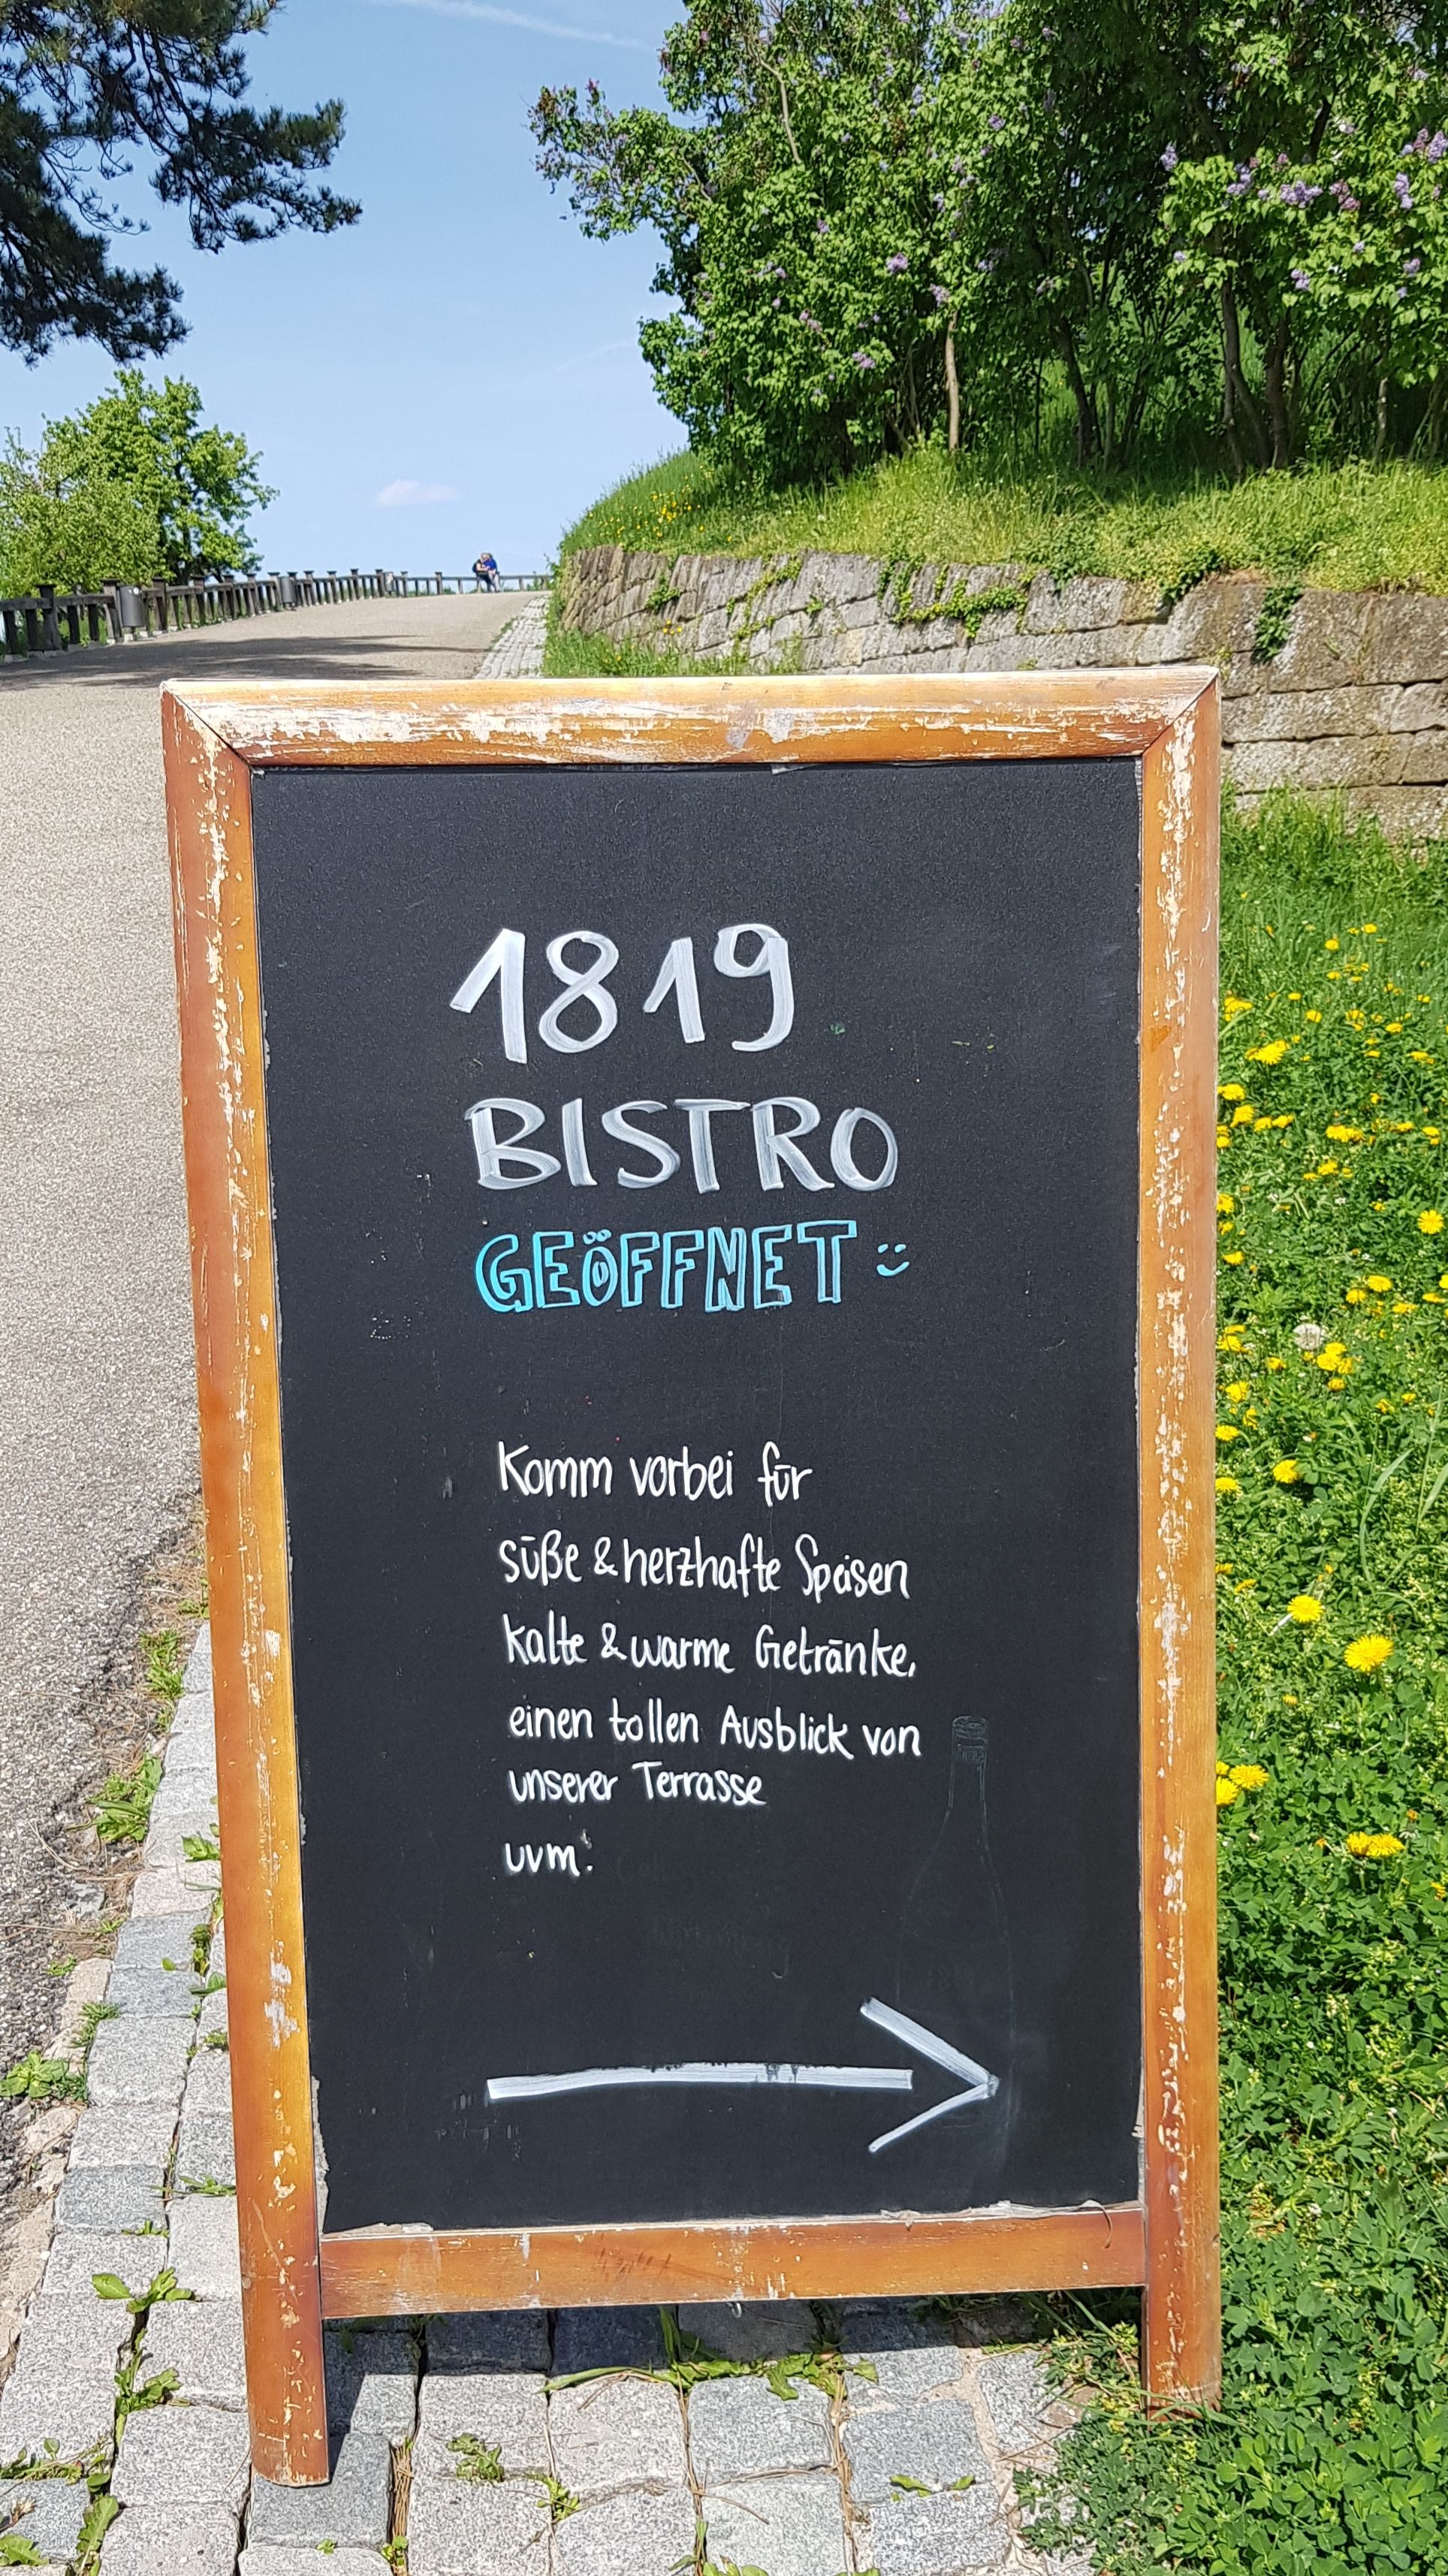 1819
BISTRO
GEÖFFNET :)
Komm vorbei für
süße & herzhafte Speisen
kalte & warme Getränke,
einen tollen Ausblick von
unserer Terrasse
uvm.